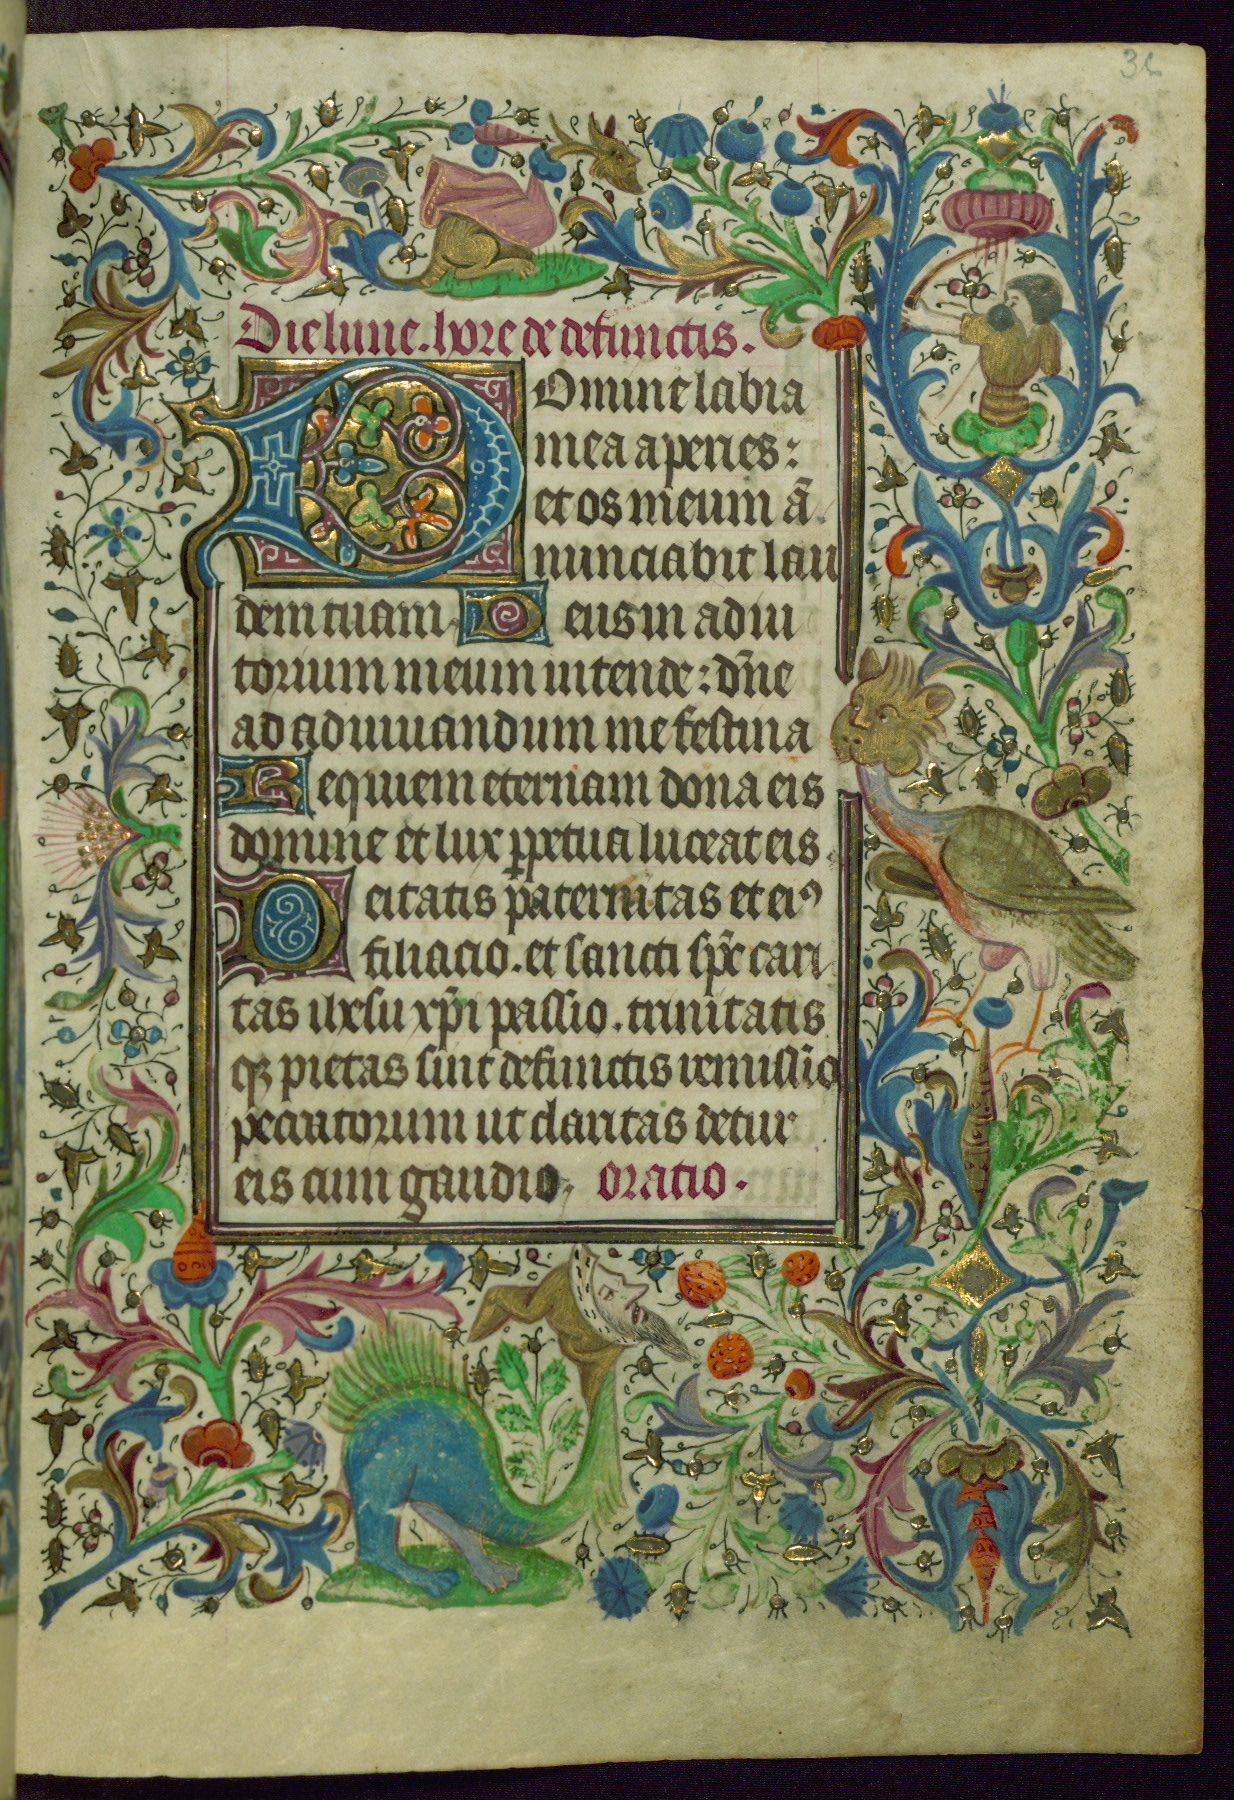 Die lune. hore de defunctis.
Domine labia
mea aperies:
et os meum ā
nunciabit lau
dem tuam. Deus in adiu
torium meum intende: dn̄e
ad adiuuandum me festina
Requiem eternam dona eis
domine et lux ꝑpetua luceat eis.
Deitatis paternitas et eiꝰ
filiacio. et sancti sp̄c cari
tas ihesu xp̄i passio. trinitatis
qꝫ pietas sint defunctis remissio
peccatorum ut claritas detur
eis cum gaudio. oratio.